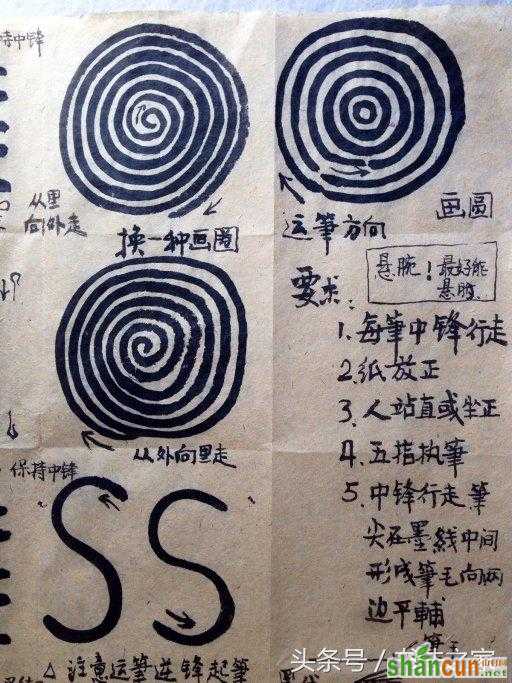 保持中锋
从里
向外走
换一种画圈
运筆方向
画圆
悬腕！最好能
悬肘
要求：
1. 每筆中锋行走
2. 纸放正
3. 人站直或坐正
4. 五指执筆
5. 中锋行走筆
尖在墨线中间
形成筆毛向两
边平輔
从外向里走
保持中锋
SS
△ 注意运筆逆锋起筆
头条号
shancun
.net